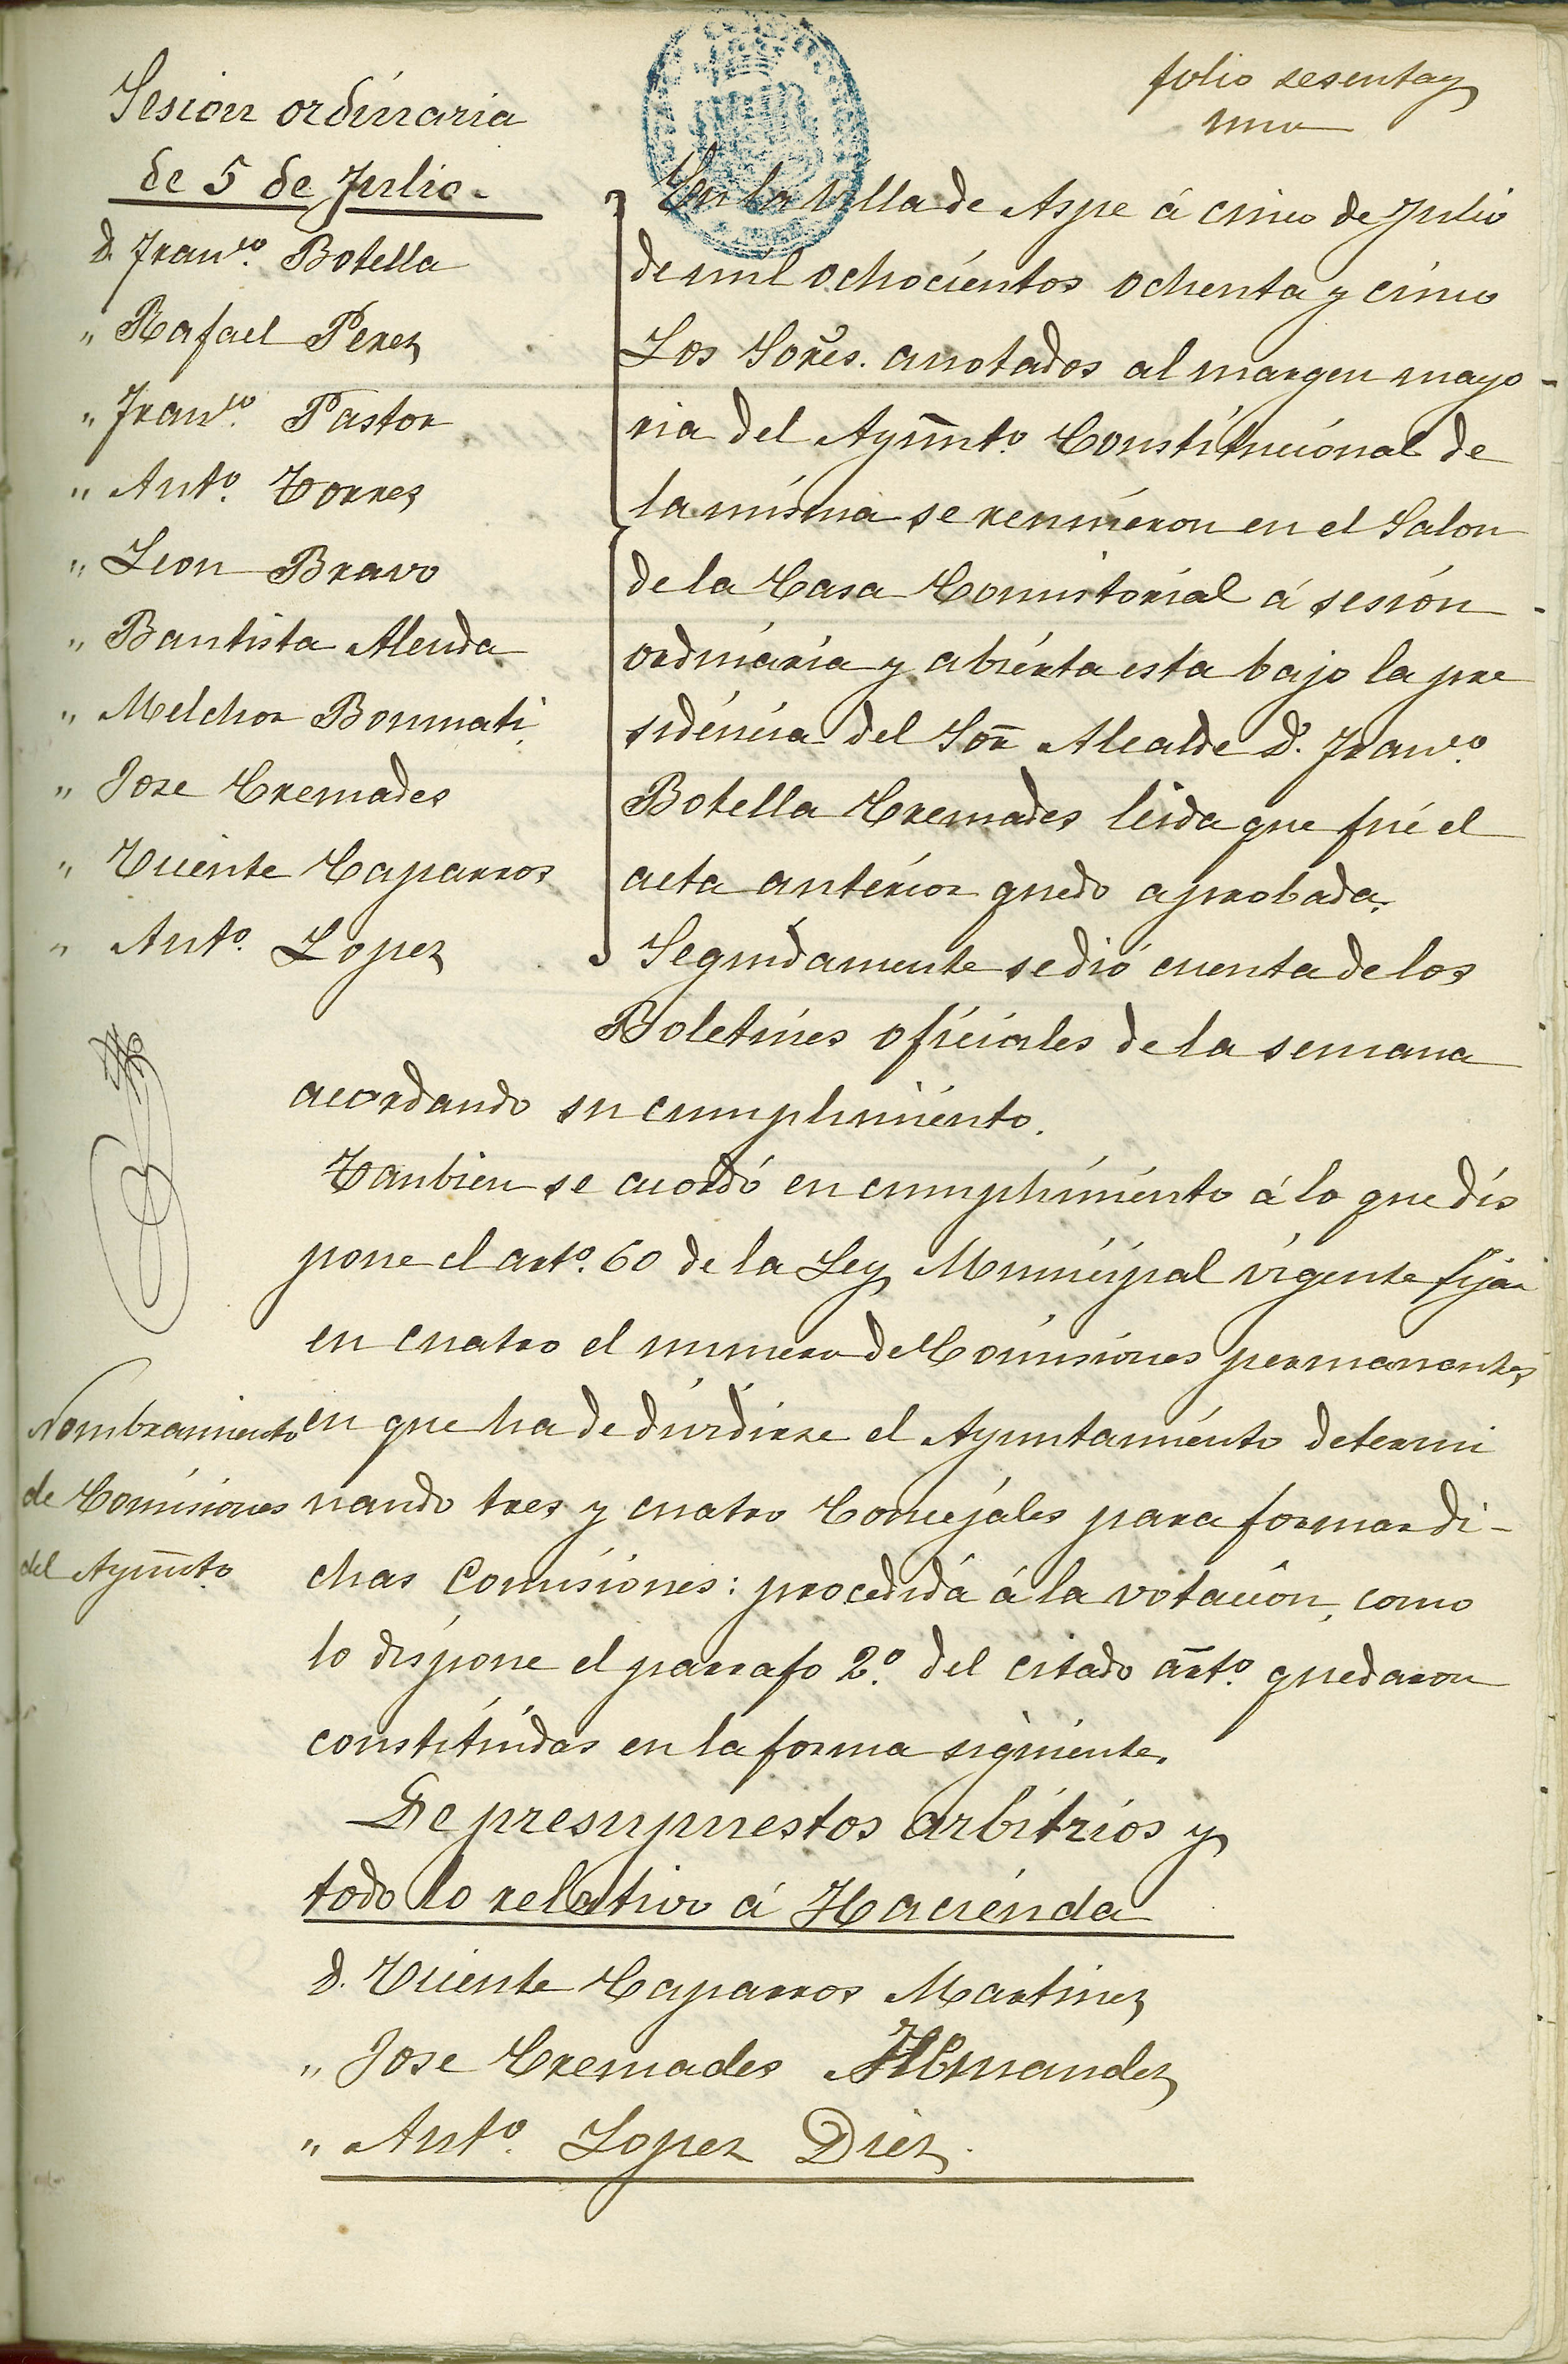 folio sesenta y
uno
Sesion ordinaria
de 5 de Julio.
D. Franco. Botella
" Rafael Perez
" Franco. Pastor
" Anto. Torres
" Leon Bravo
" Bautista Alenda
" Melchor Bonmati
" Jose Cremades
" Vicente Caparros
" Anto. Lopez
En la Villa de Aspe á cinco de Julio
de mil ochocientos ochenta y cinco
Los Sores. anotados al margen mayo-
ria del Ayunto. Constitucional de
la misma se reunieron en el Salon
de la Casa Consistorial á sesión
ordinaria y abierta esta bajo la pre
sidencia del Sor Alcalde D. Franco.
Botella Cremades leida que fué el
acta anterior quedo aprobada.
Seguidamente se dió cuenta de los
Boletines oficiales de la semana
acordando su cumplimiento.
Tanbien se acordó en cumplimiento á lo que dis
pone el arto. 60 de la Ley Municipal vigente fijar
en cuatro el numero de Comisiones permanentes
Nombramiento
de Comisiones
del Ayunto.
en que ha de dividirse el Ayuntamiento determi
nando tres y cuatro Concejales para formar di-
chas Comisiones: procedida á la votación, como
lo dispone el parrafo 2º. del citado arto. quedaron
constituidas en la forma siguiente.
De presupuestos arbitrios y
todo lo relativo á Hacienda
D. Vicente Caparros Martinez
" Jose Cremades Hernandez
" Anto. Lopez Diez.